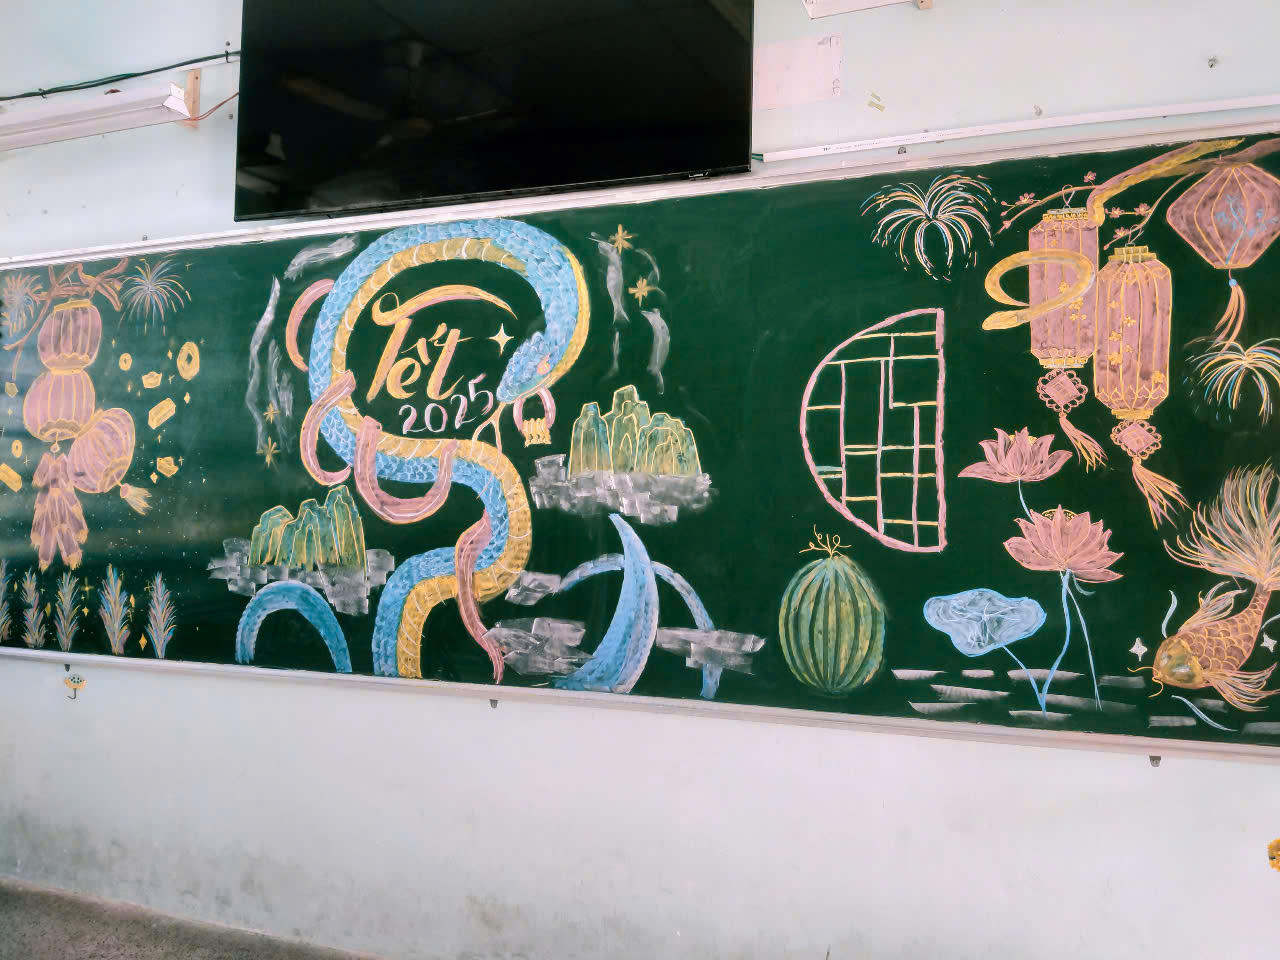 Tết
2025